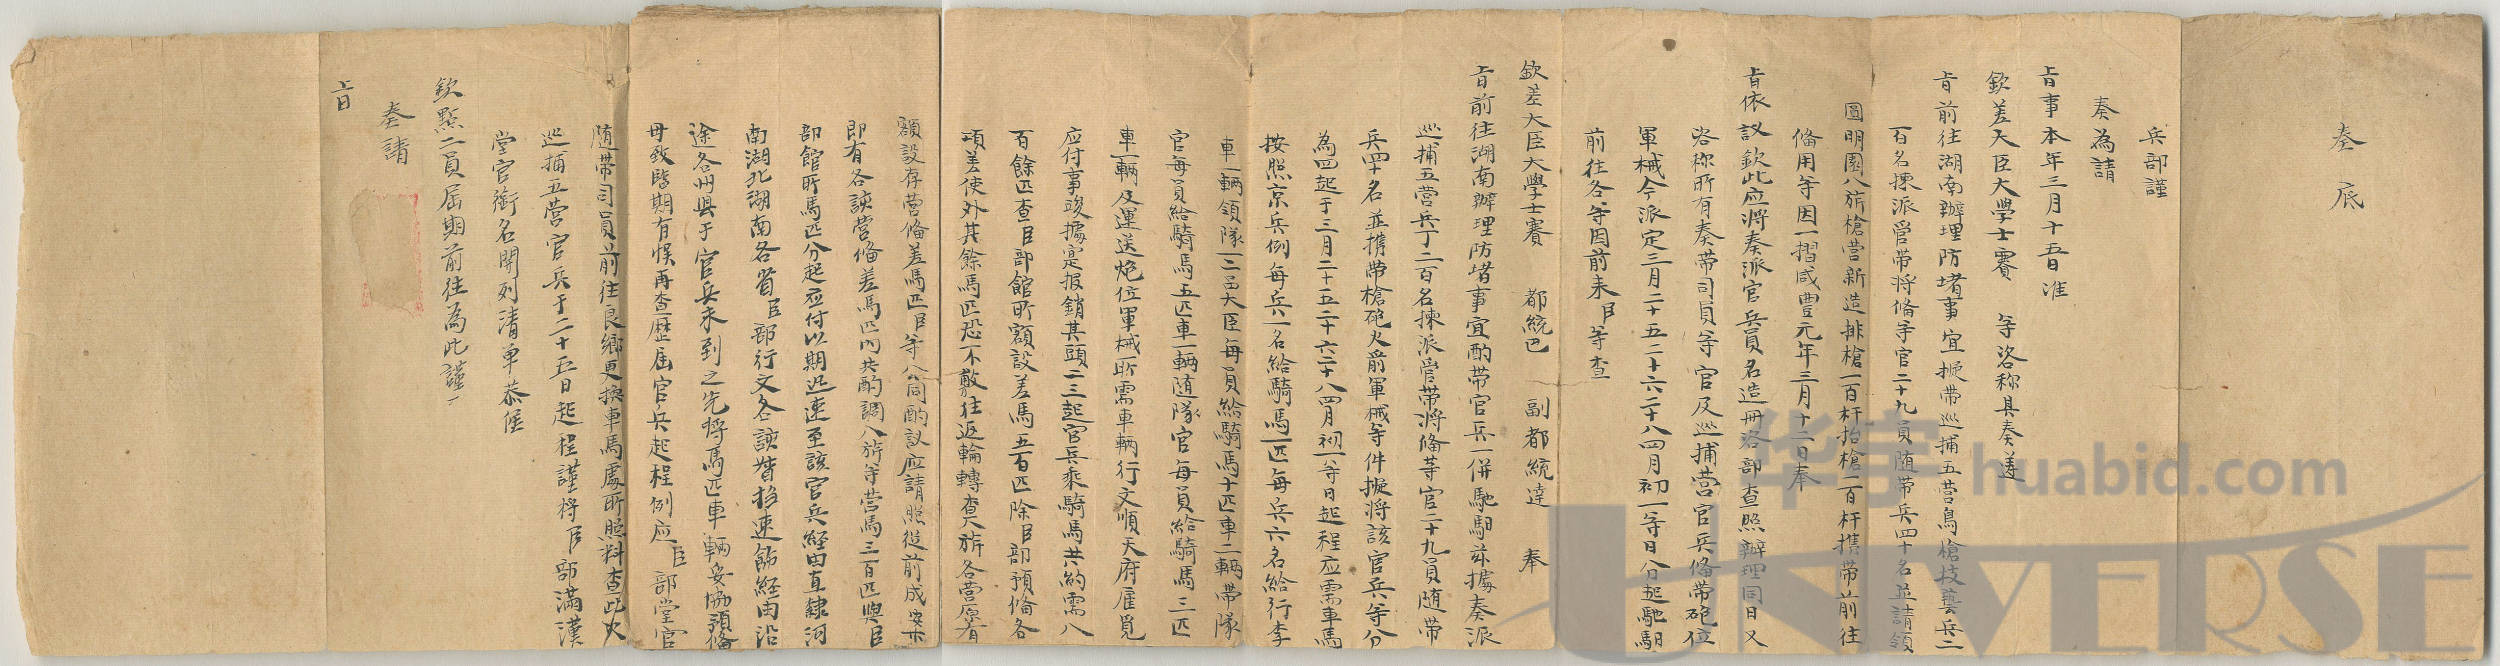 奏底
兵部謹
奏為請
旨事本年三月十五日准
欽差大臣大學士賽 等咨称具奏遵
旨前往湖南辦理防堵事宜擬帶巡捕五營鳥槍技藝兵二
百名揀派管帶將俻等官二十九員随帶兵四十名並請領
圓明園八旂槍營新造排槍一百杆抬槍一百杆攜帶前往
俻用等因一摺咸豐元年三月十二日奉
旨依議欽此应將奏派官兵員名造冊咨部查照辦理同日又
咨称所有奏帶司員等官及巡捕營官兵俻帶砲位
軍械今派定三月二十五二十六二十八四月初一等日分起馳馹
前往各等因前来臣等查
欽差大臣大學士賽 都統巴 副都統達 奉
旨前往湖南辦理防堵事宜酌帶官兵一併馳馹茲據奏派
巡捕五營兵丁二百名揀派管帶將俻等官二十九員随帶
兵四十名並攜帶槍砲火箭軍械等件擬將該官兵等分
為四起于三月二十五二十六二十八四月初一等日起程应需車馬
按照京兵例每兵一名給騎馬一匹每兵六名給行李
車一輛領隊一二品大臣每員給騎馬十匹車二輛帶隊
官每員給騎馬五匹車一輛随隊官每員給騎馬三匹
車一輛及運送炮位軍械所需車輛行文順天府雇覓
应付事竣據寔报銷其頭二三起官兵乘騎馬共約需八
百餘匹查臣部館所額設差馬五百匹除臣部預俻各
項差使外其餘馬匹恐不敷往返輪轉查八旂各營原有
額設存營俻差馬匹臣等公同酌議应請照從前成案
即有各該營俻差馬匹內共酌調八旂等營馬三百匹與臣
部館所馬匹分起应付以期迅速至該官兵経由直隸河
南湖北湖南各省臣部行文各該督撫速飭経由沿
途各州縣于官兵未到之先将馬匹車輛妥協預俻
毋致臨期有悮再查歷屆官兵起程例应臣部堂官
随帶司員前往良鄉更換車馬處所照料查此次
巡捕五營官兵于二十五日起程謹将臣部滿漢
堂官銜名開列清单恭候
欽點二員屆期前往為此謹
奏請
旨
华宇 huabid.com
UNIVERSE